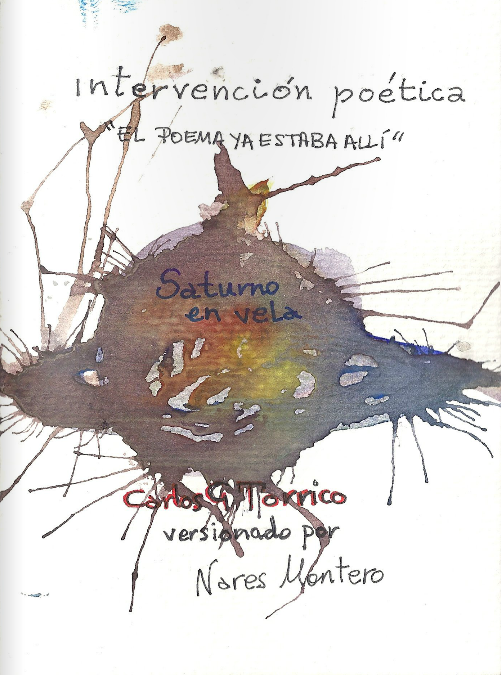 Intervención poética
"EL POEMA YA ESTABA ALLÍ"
Saturno
en vela
Carlos G. Torrico
versionado por
Nares Montero